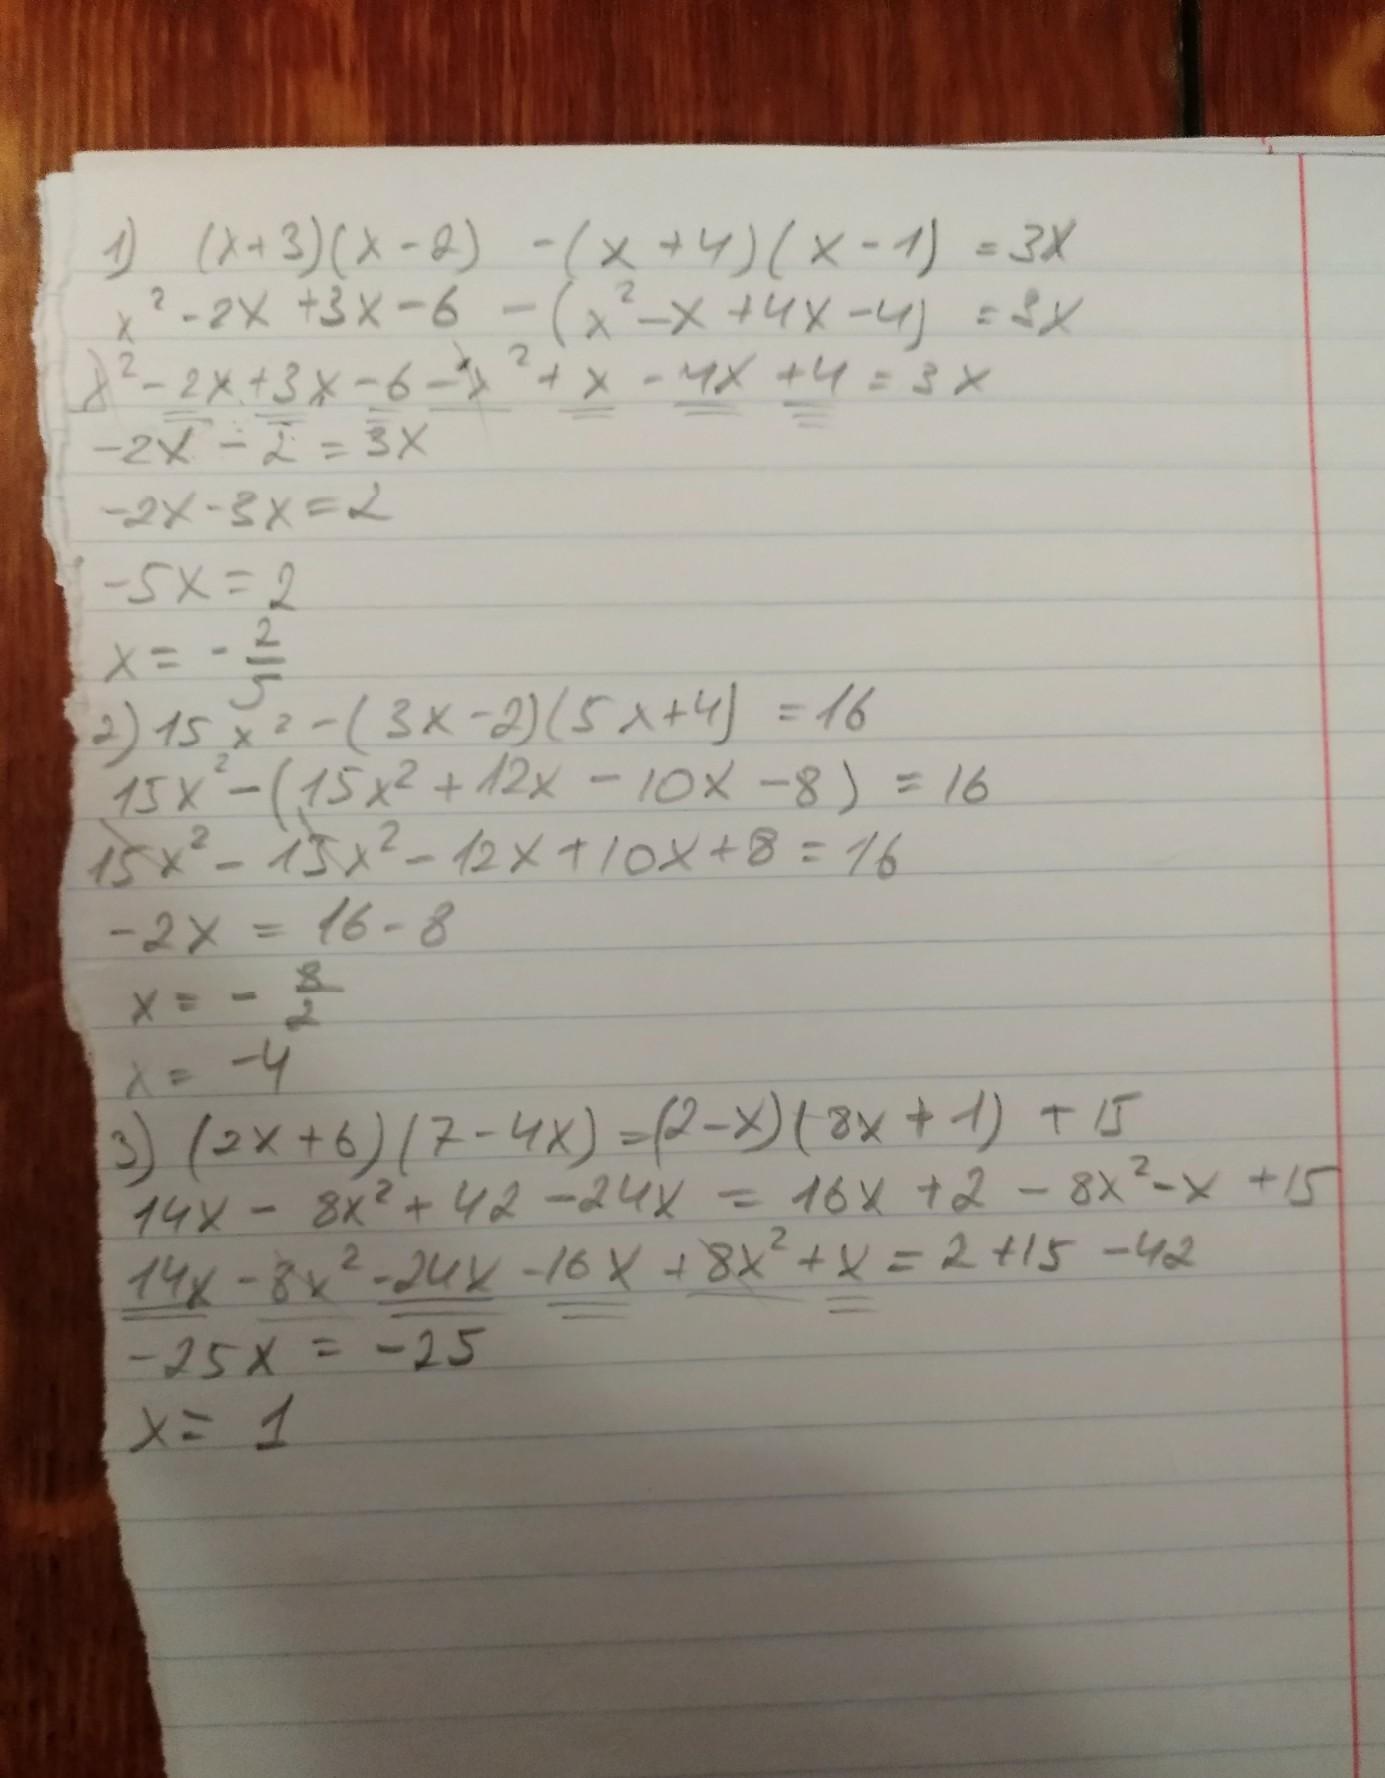 1) (x+3)(x-2) -(x+4)(x-1) = 3x
x² -2x +3x -6 -(x² -x +4x -4) = 3x
x² -2x +3x -6 -x² +x -4x +4 = 3x
-2x -2 = 3x
-2x -3x = 2
-5x = 2
x = -2/5
2) 15x² -(3x-2)(5x+4) = 16
15x² -(15x² +12x -10x -8) = 16
15x² -15x² -12x +10x +8 = 16
-2x = 16-8
x = -8/2
x = -4
3) (2x+6)(7-4x) = (2-x)(8x+1) +15
14x - 8x² + 42 -24x = 16x +2 -8x² -x +15
14x -8x² -24x -16x +8x² +x = 2+15 -42
-25x = -25
x = 1